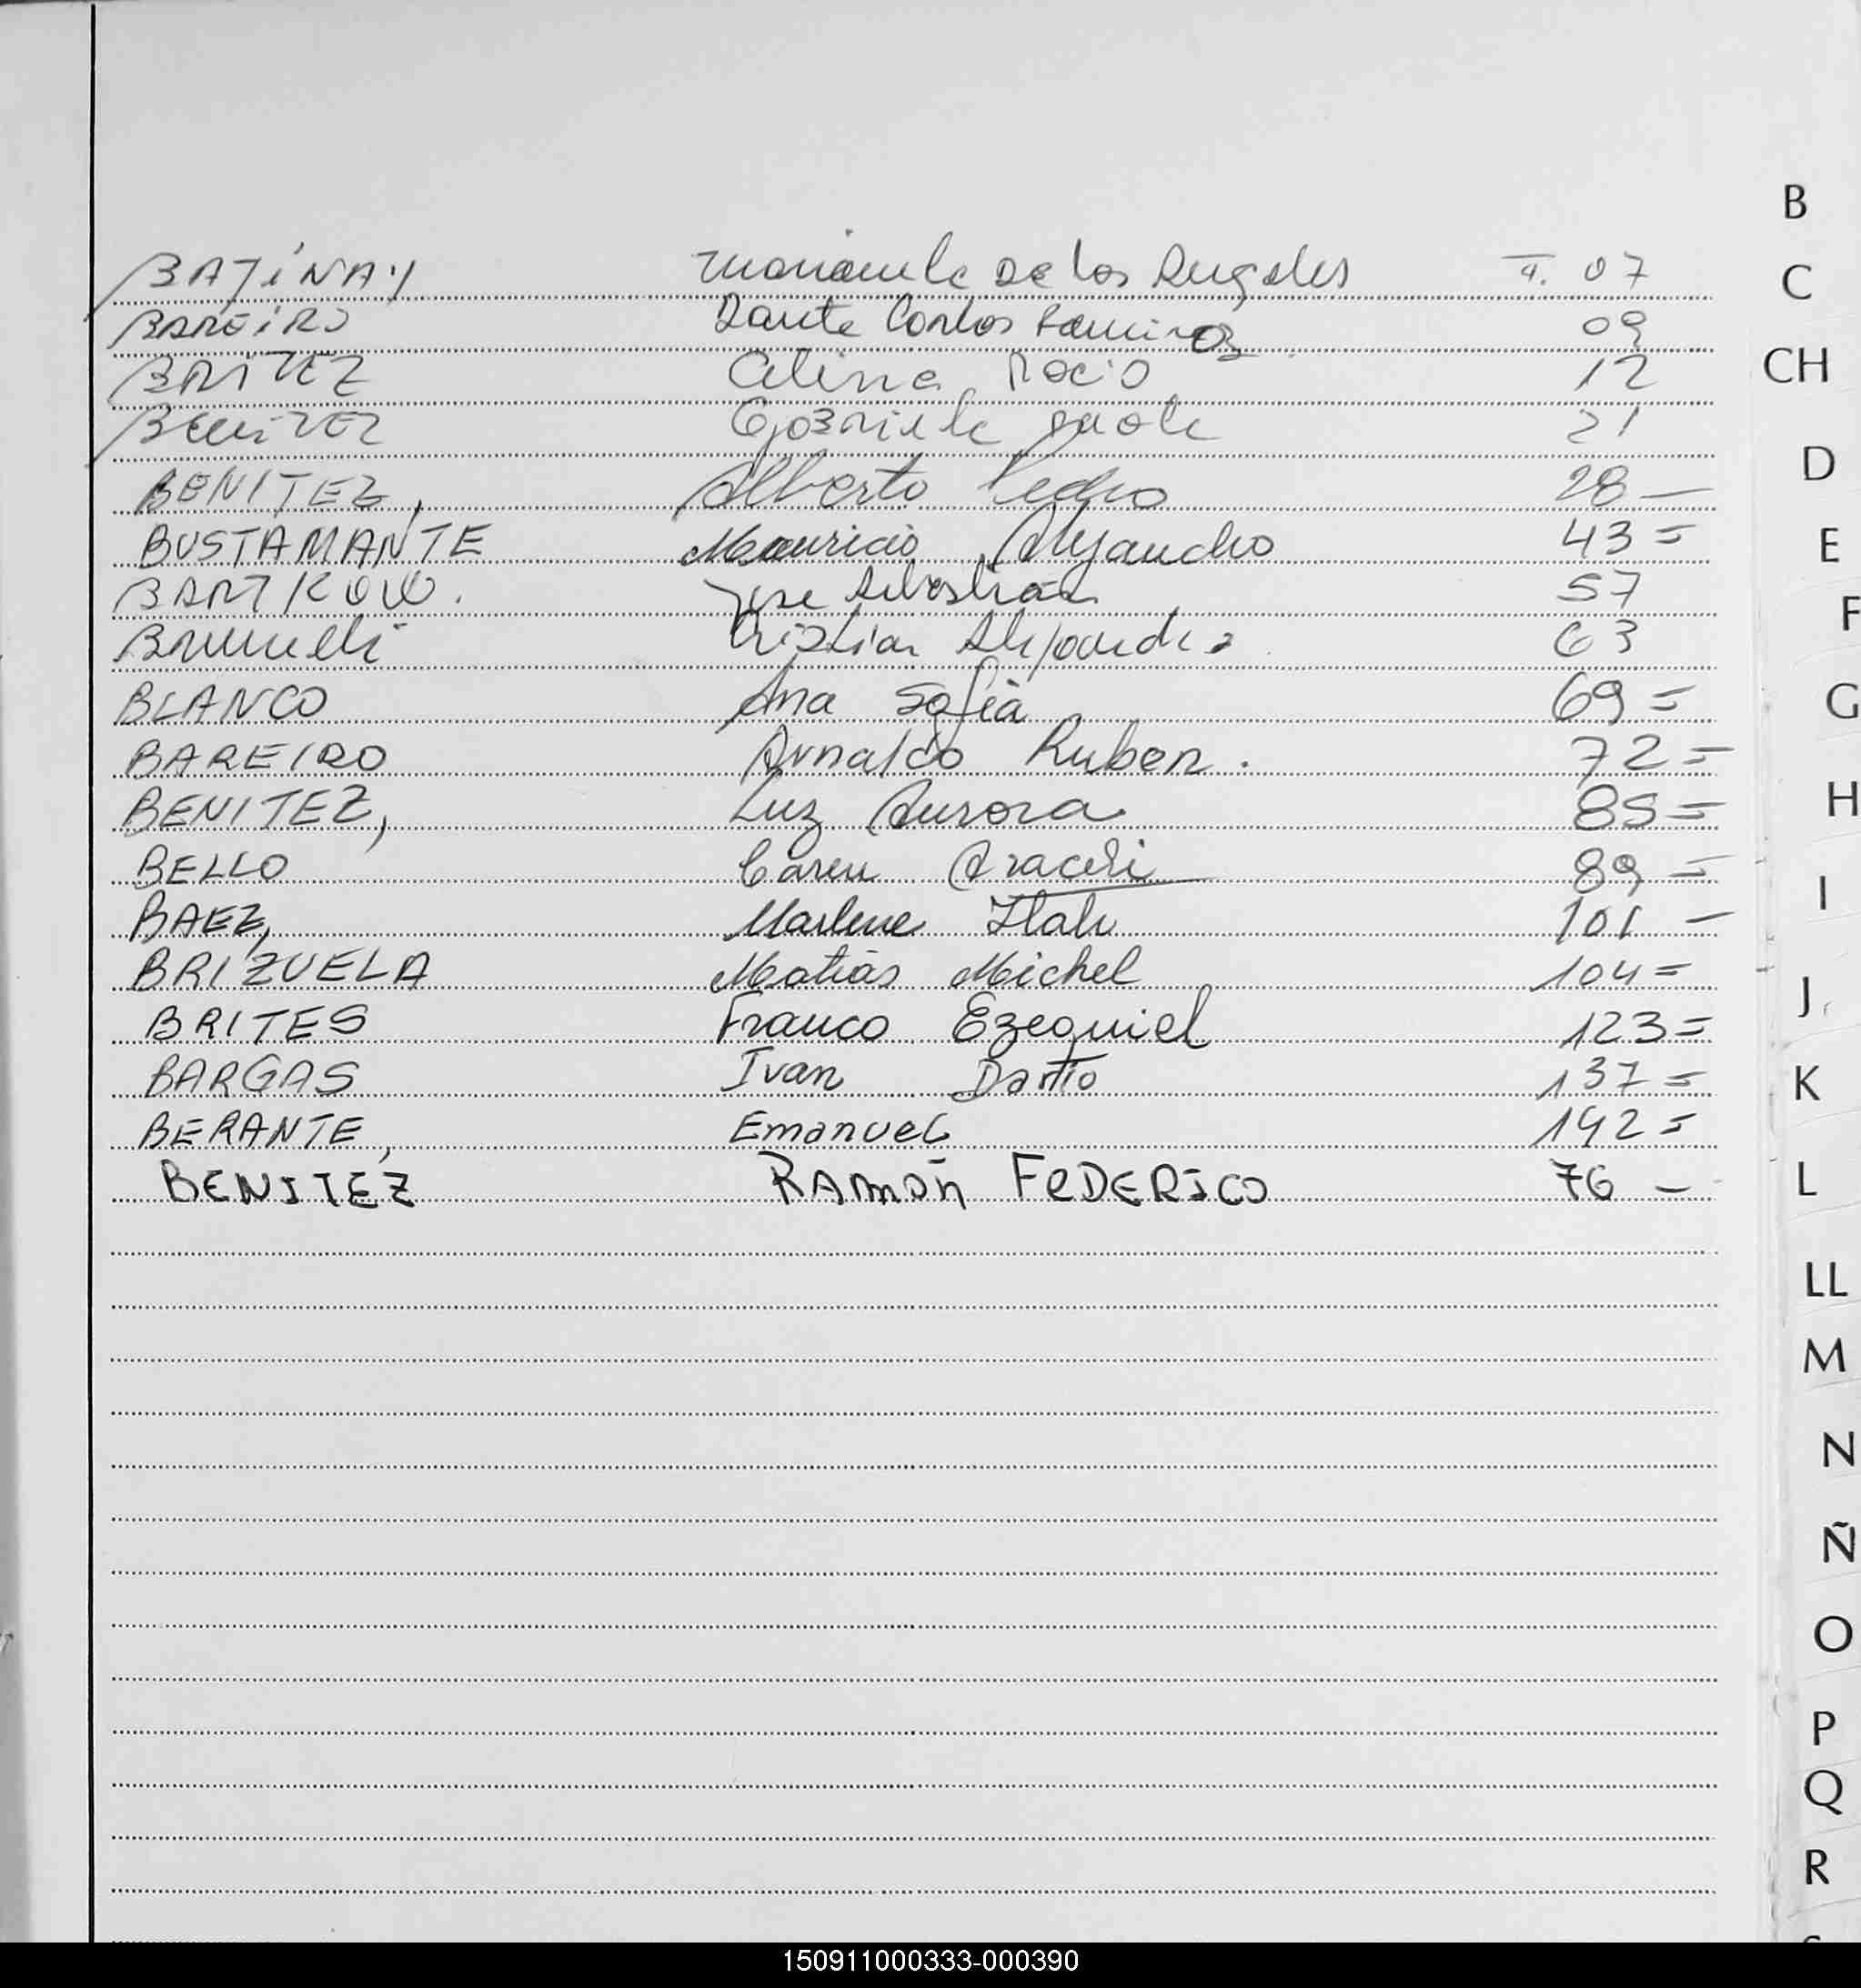 B
BAJINAY Marianela De los Angeles T. 07
C
BAREIRO Dante Carlos Ramiro 09
CH
BRITEZ Celina Rocio 12
BENITEZ Gabriela Paola 21
D
BENITEZ, Alberto Pedro 28 —
BUSTAMANTE Mauricio Alejandro 43 =
E
BARTKOW. Jose 57
F
Brunelli Cristian Alejandro 63
BLANCO Ana Sofia 69 =
G
BAREIRO Arnaldo Ruben. 72 =
BENITEZ, Luz Aurora 85 =
H
BELLO Caren Araceli 89 =
I
BAEZ, Marlene Itati 101 —
BRIZUELA Matias Michel 104 =
J
BRITES Franco Ezequiel 123 =
BARGAS Ivan Dario 137 =
K
BERANTE, Emanuel 142 =
BENITEZ RAMÓN FEDERICO 76 —
L
LL
M
N
Ñ
O
P
Q
R
150911000333-000390